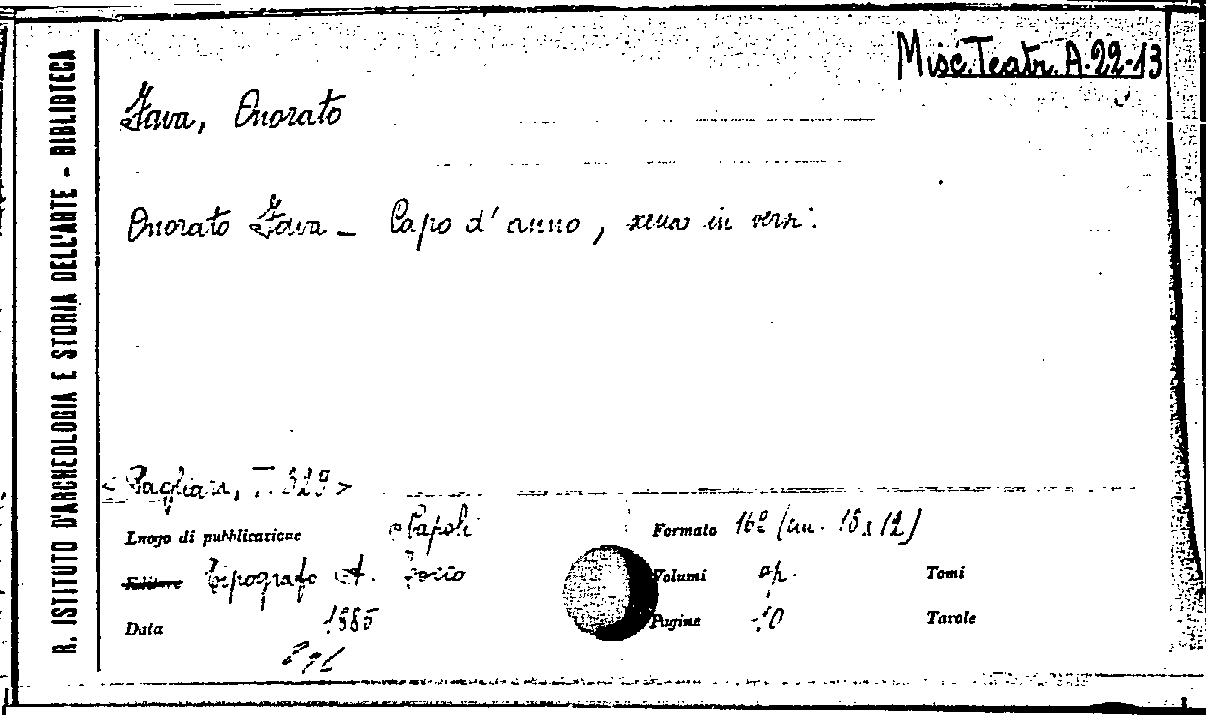 Misc. Teatr. A. 22-13
R. ISTITUTO D'ARCHEOLOGIA E STORIA DELL'ARTE - BIBLIOTECA
Fava, Onorato
Onorato Fava - Capo d'anno, scena in versi.
<Pagliara, T. 329>
Luogo di pubblicazione Napoli
Formato 16º (cm. 18 x 12)
Editore Tipografo A.
Volumi op.
Tomi
Data 1885
Pagine 10
Tavole